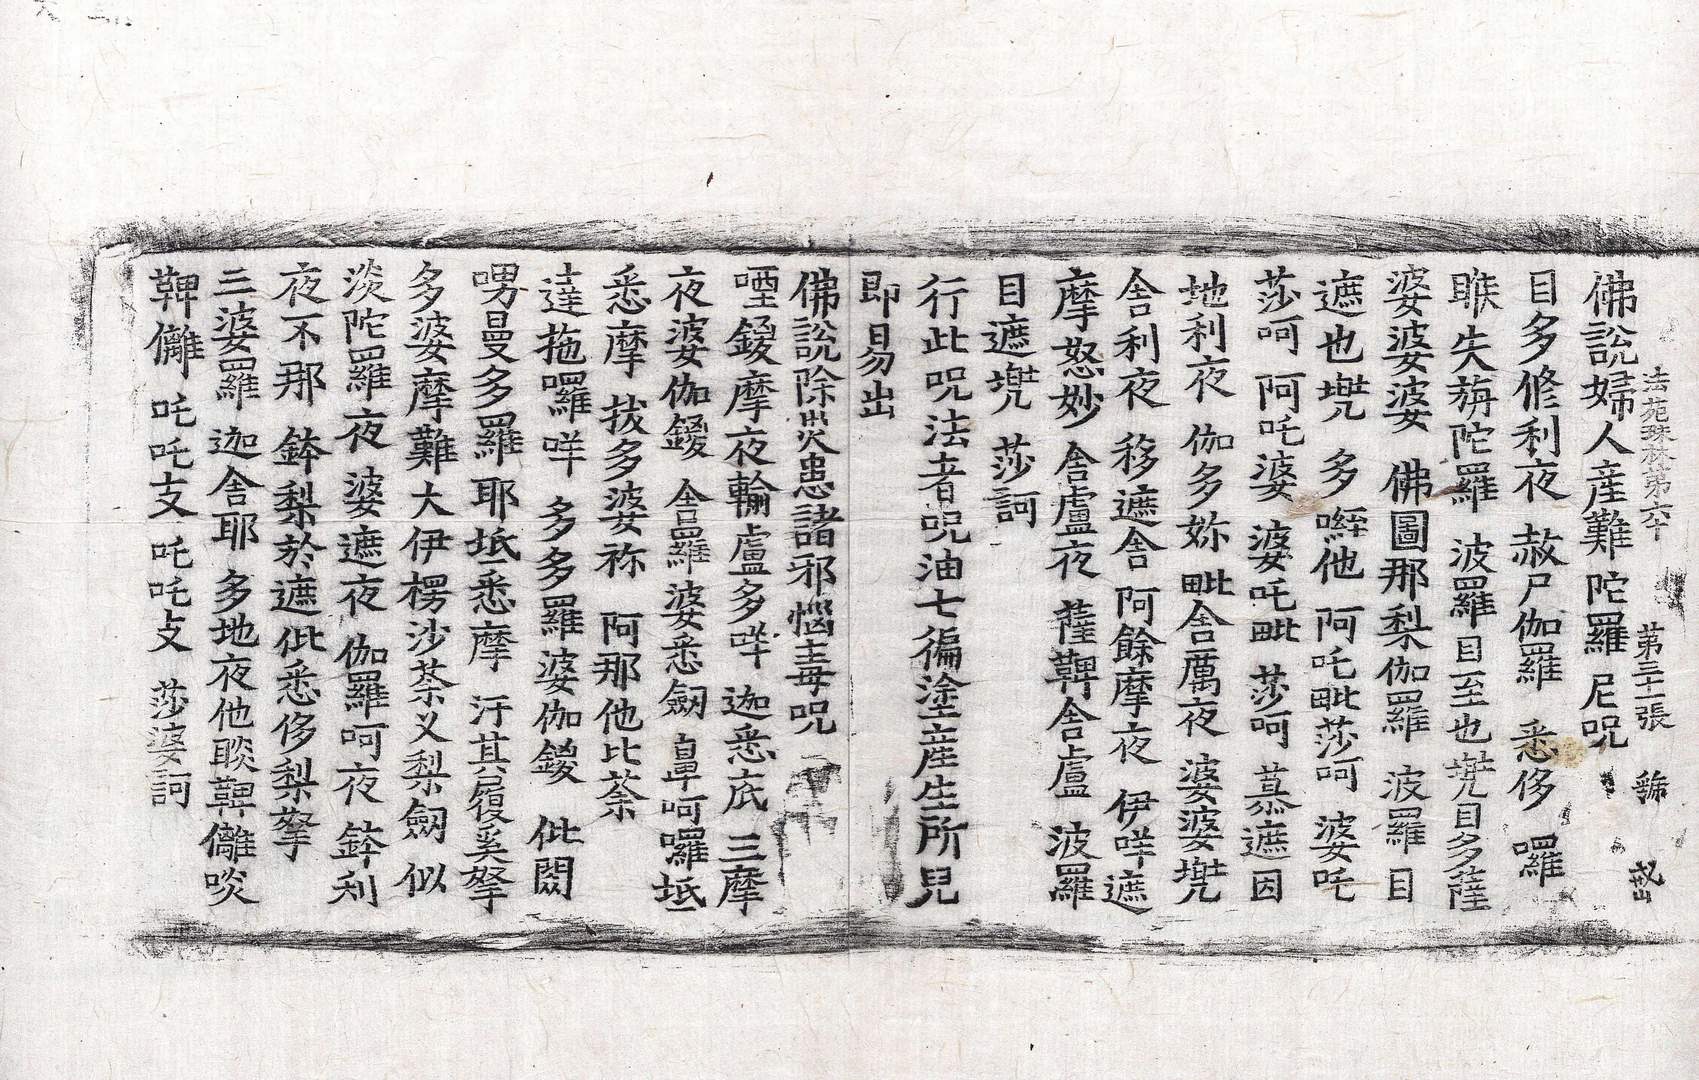 法苑珠林第六十 第三十一張 㱕
佛說婦人産難陀羅尼呪
目多修利夜 赦尸伽羅 悉侈 囉
睺失旃陀羅 波羅目至也兠目多薩
婆婆婆 佛圖那梨伽羅 波羅目
遮也兠 多咥他 阿吒毗莎呵 婆吒
莎呵 阿吒婆 婆吒毗 莎呵 慕遮因
地利夜 伽多妳 毗舍厲夜 婆婆兠
舍利夜 移遮舍 阿餘摩夜 伊咩遮
摩怒妙 舍盧夜 薩鞞舍盧 波羅
目遮兠 莎訶
行此呪法者呪油七徧塗産生所兒
即易出
佛說除災患諸邪惱毒呪
㖶鍐摩夜輸盧多咩 迦悉底 三摩
夜婆伽鍐 舍羅婆悉劒 鼻呵囉坻
悉摩 拔多婆祢 阿那他比荼
達拖囉咩 多多羅婆伽鍐 仳閻
喟曼多羅耶坻悉摩 汙其履奚拏
多婆摩難大伊楞沙荼义梨劒 似
淡陀羅夜 婆遮夜 伽羅呵夜 鉢利
夜不那 鉢梨於遮仳悉侈梨拏
三婆羅 迦舍耶 多地夜他睒鞞儺啖
鞞儺 吒吒支 吒吒支 莎婆訶